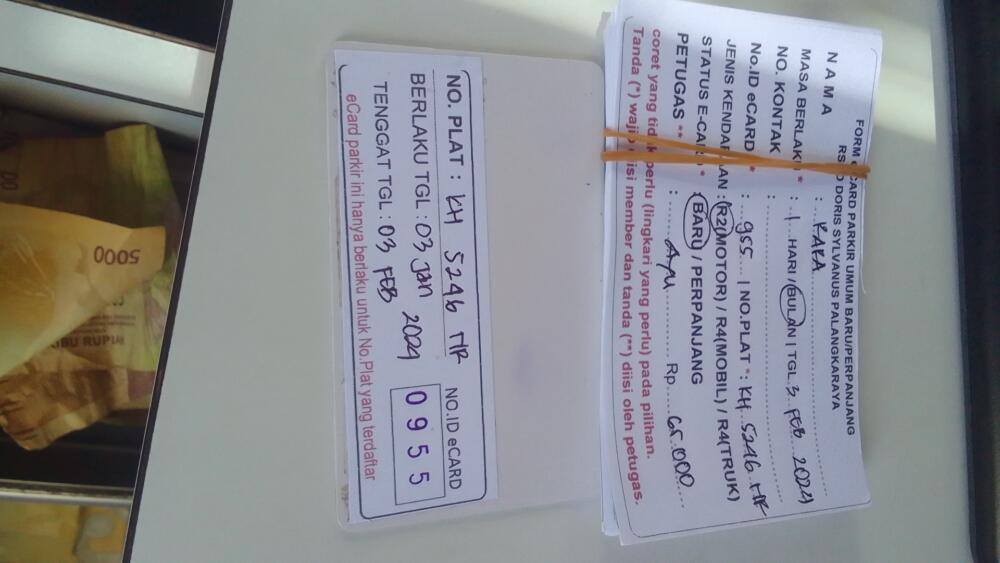 FORM eCARD PARKIR UMUM BARU/PERPANJANG
RSUD DORIS SYLVANUS PALANGKARAYA
N A M A : KAKA
MASA BERLAKU * : 1 HARI / BULAN | TGL. 3 FEB 2024
NO. KONTAK :
No.ID eCARD * : 955 | NO.PLAT * : KH 5246 TIR
JENIS KENDARAAN : R2(MOTOR) / R4(MOBIL) / R4(TRUK)
STATUS E-CARD * : BARU / PERPANJANG
PETUGAS ** : Ayu Rp. 65.000
coret yang tidak perlu (lingkari yang perlu) pada pilihan.
Tanda (*) wajib diisi member dan tanda (**) diisi oleh petugas.
NO. PLAT : KH 5246 TIR
BERLAKU TGL : 03 Jan 2024
TENGGAT TGL : 03 FEB
NO.ID eCARD
0955
eCard parkir ini hanya berlaku untuk No.Plat yang terdaftar
5000
IBU RUPIAH
00